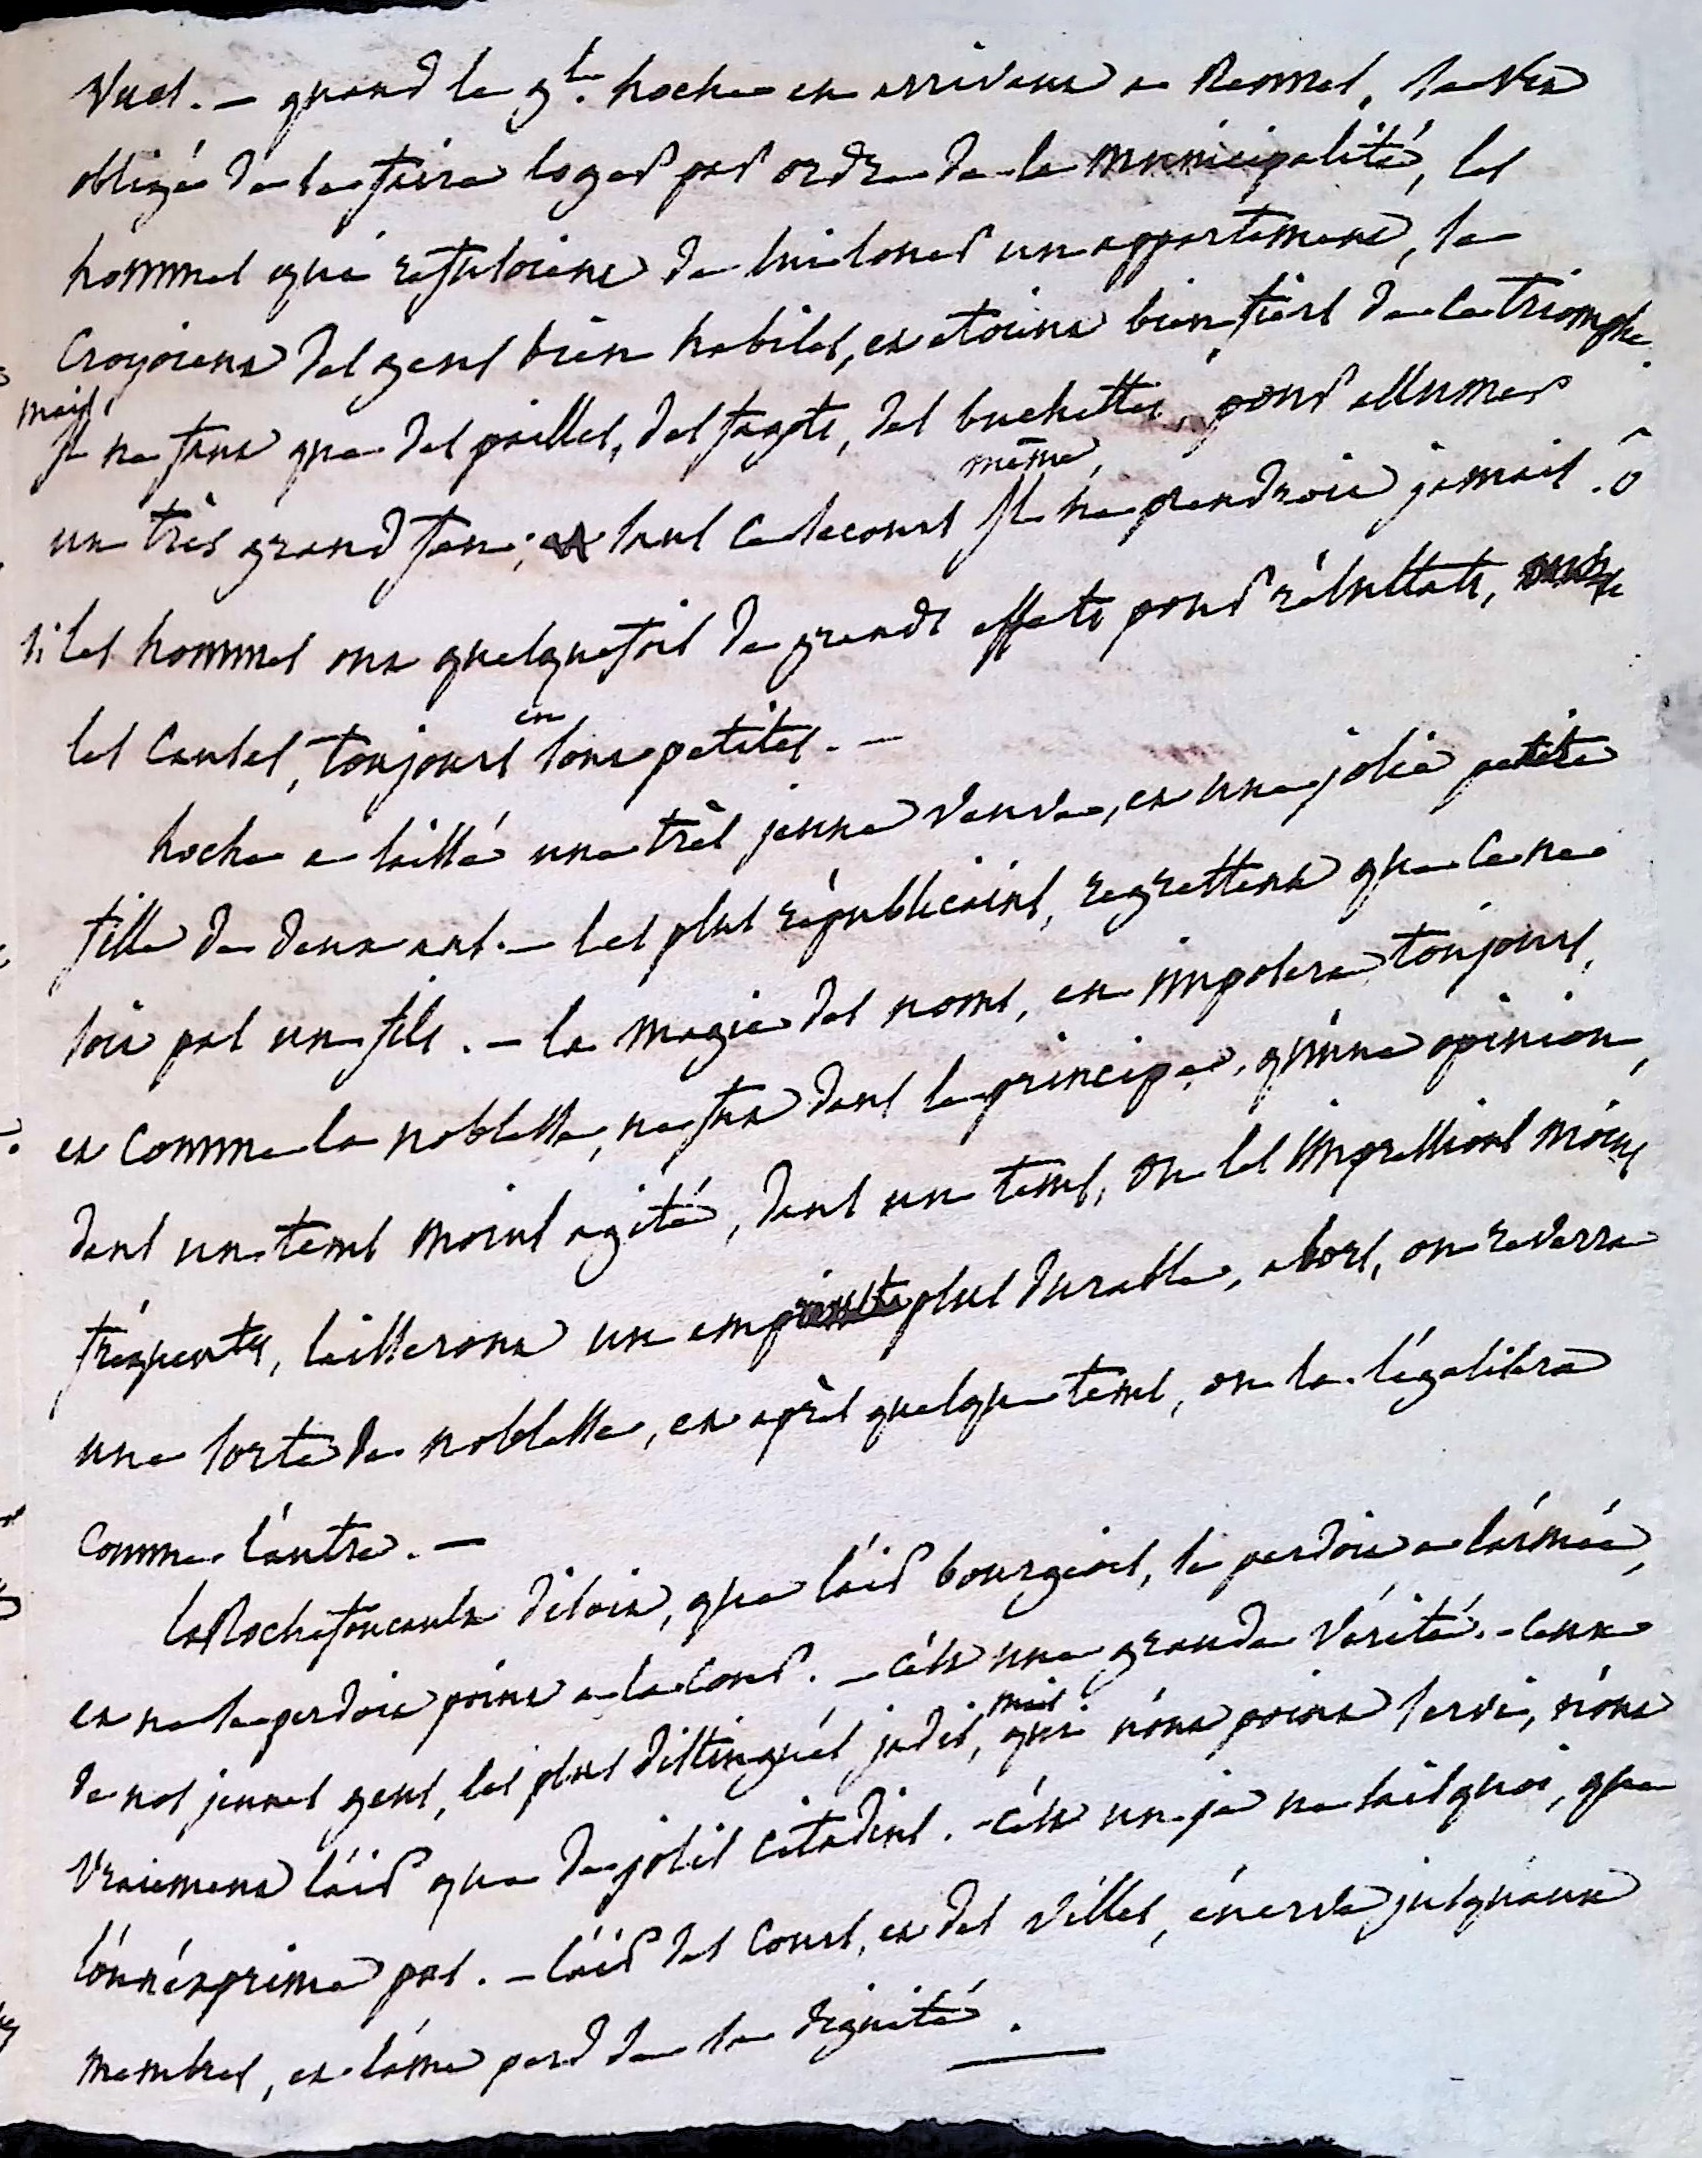 vues. — quand le g.al hoche en arrivant a Rennes, se vit
obligé de se faire loger par ordre de la municipalité, les
hommes qui refusoient de lui louer un appartement, se
croyoient des gens bien habiles, et etoient bien fiers de ce triomphe.
mais, il ne faut que des pailles, des fagots, des buchettes, pour allumer
un très grand feu; sans ce secours même, il ne prendroit jamais. ô
si les hommes ont quelquefois de grands effets pour résultats,
les causes, toujours en sont petites. —
hoche a laissé une très jeune veuve, et une jolie petite
fille de deux ans. — les plus républicains, regrettent que ce ne
soit pas un fils. — la magie des noms, en imposera toujours,
et comme la noblesse, ne fut dans le principe, qu'une opinion,
dans un tems moins agité, dans un tems, ou les impressions moins
fréquentes, laisseront un empreinte plus durable, alors, on reverra
une sorte de noblesse, et après quelque tems, on la légalisera
comme l'autre. —
LaRochefoucault disoit, que l'air bourgeois, se perdoit a l'armée,
et ne se perdoit point a la cour. — c'est une grande vérité. — ceux
de nos jeunes gens, les plus distingués jadis, mais qui n'ont point servi, n'ont
vraiment l'air que de jolis citadins. — c'est un je ne sais quoi, que
l'on n'éxprime pas. — l'air des cours, et des villes, énerve jusqu'aux
membres, et l'ame perd de sa dignité.